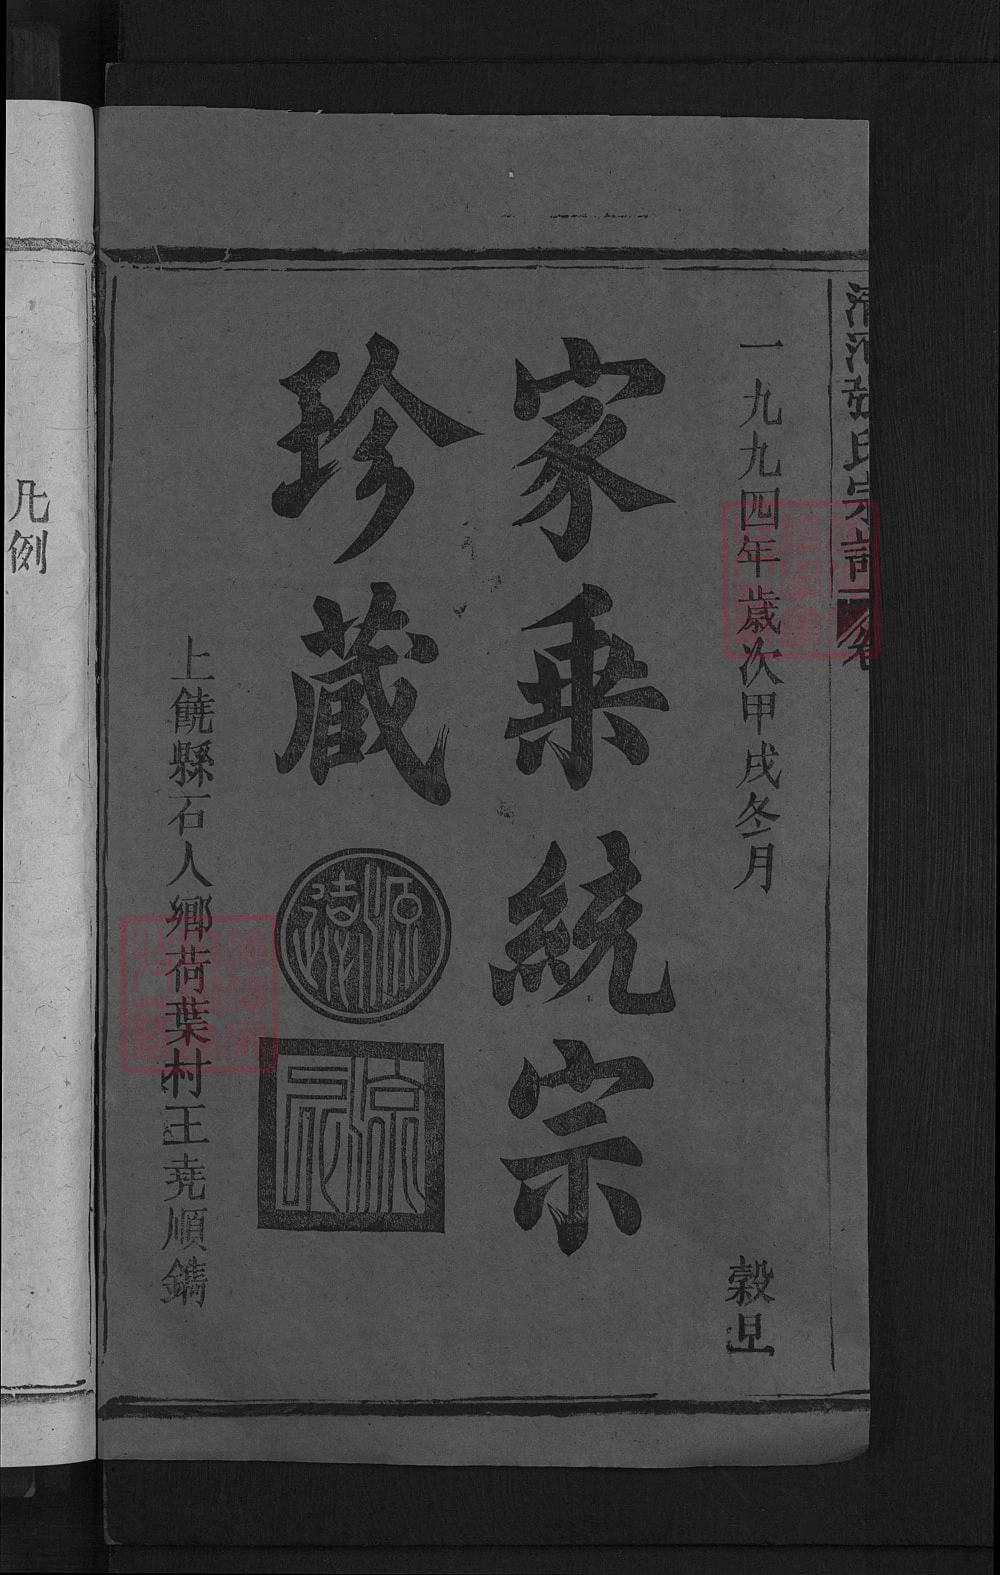 清河張氏宗譜 卷
一九九四年歲次甲戌冬月 穀旦
家乗統宗
珍藏
源遠
流長
上饒縣石人鄉荷葉村王堯順鐫
凡例